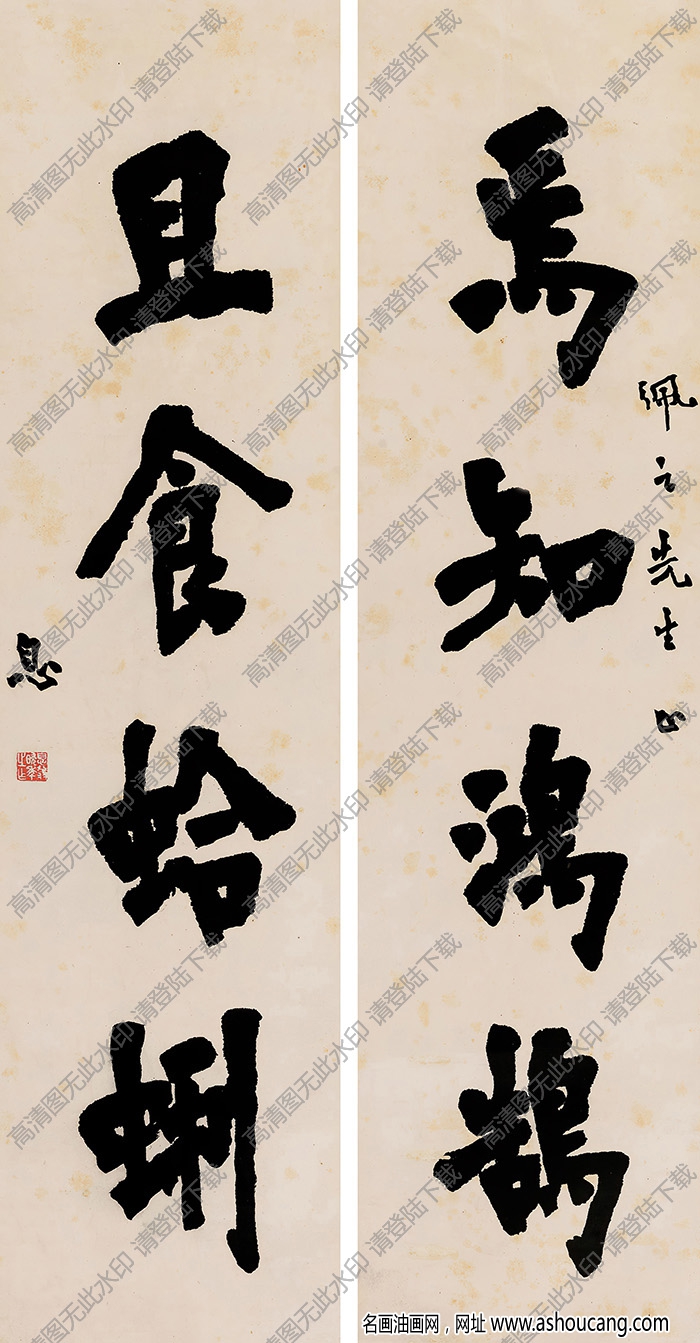 先生
焉知鴻鵠
且食蛤蜊
息
高清图无此水印 请登陆下载
名画油画网，网址 www.ashoucang.com